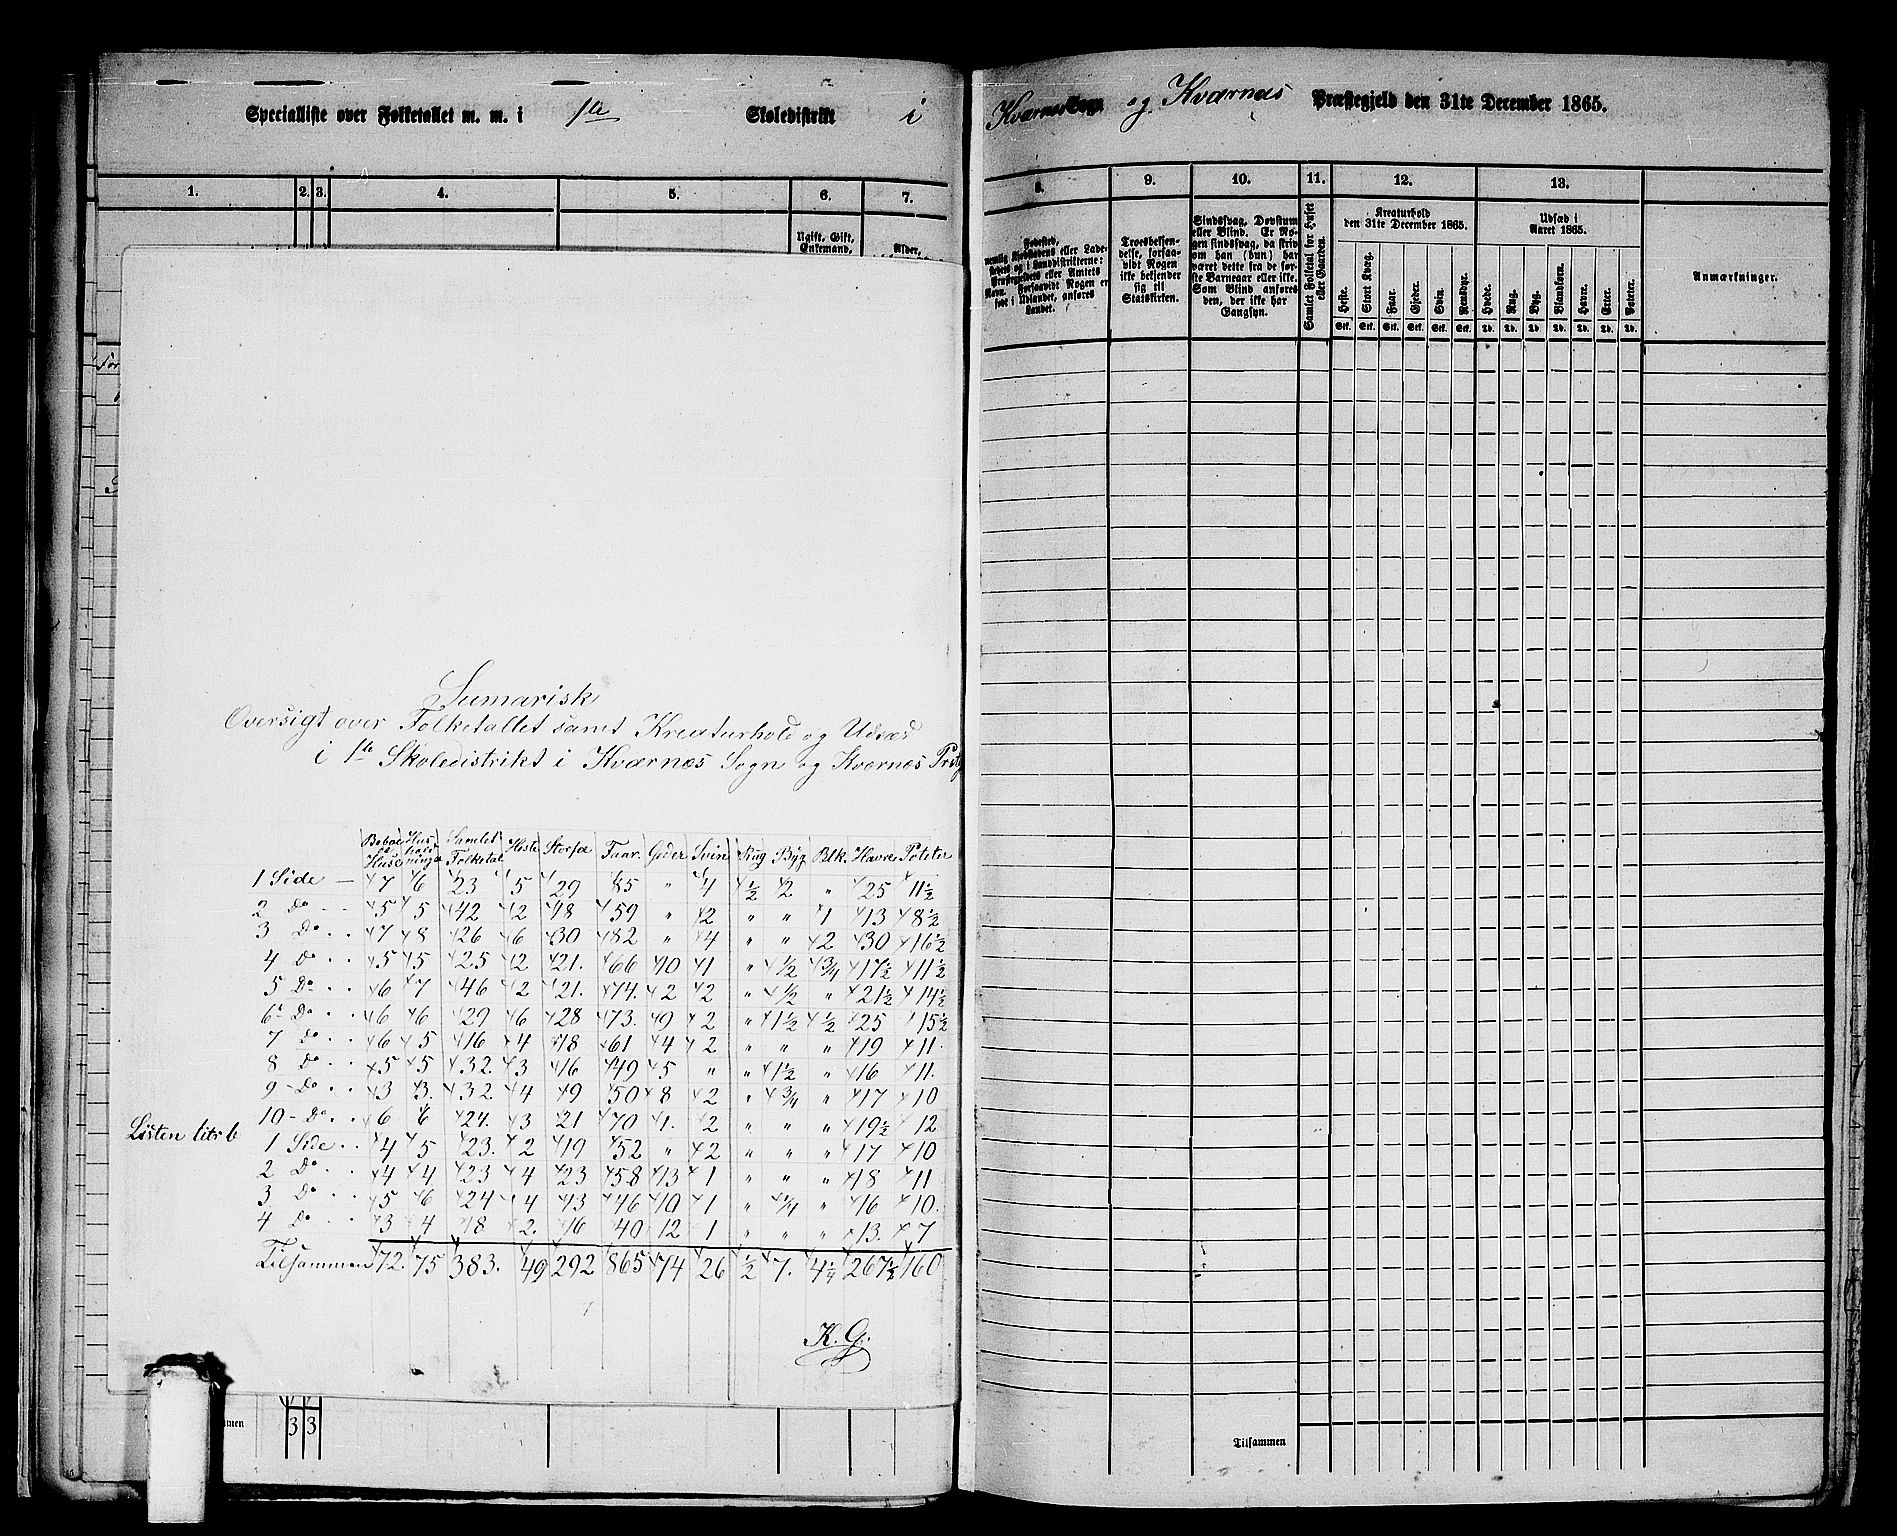 Specialliste over Folketallet m. m. i 1ste Skoledistrikt i
Kværnæs Sogn og Kværnæs Præstegjeld den 31te December 1865.
1. 2. 3. 4. 5. 6. 7.
Ugift, Gift,
Enkemand,
Alder,
8. 9. 10. 11. 12. 13.
Fødested,
nemlig Kjøbstadens eller Lade-
stedets og i Landdistrikterne:
Præstegjeldets eller Amtets
Navn. Forsaavidt Nogen er
født i Udlandet, anføres
Landet.
Troesbekjen-
delse, forsaa-
vidt Nogen
ikke bekjender
sig til
Statskirken.
Sindssvag, Døvstum
eller Blind. Er No-
gen sindssvag, da skriv
om han (hun) har
været dette fra de før-
ste Barneaar eller ikke.
Som Blind anføres
den, der ikke har
Gangsyn.
Samlet Folketal for Huset
eller Gaarden.
Kreaturhold
den 31te December 1865.
Heste. Stort Kvæg. Faar. Gjeder. Svin. Rensdyr.
Stk. Stk. Stk. Stk. Stk. Stk.
Udsæd i
Aaret 1865.
Hvede. Rug. Byg. Blandkorn. Havre. Erter. Poteter.
Td. Td. Td. Td. Td. Td. Td.
Anmærkninger.
Sumarisk
Oversigt over Folketallet samt Kreaturhold og Udsæd
i 1ste Skoledistrikt i Kværnæs Sogn og Kværnæs
Beboede Huse Hus holdninger Samlet Folketal Heste Storfæ Faar. Gjeder Svin Rug Byg Blk. Havre Poteter
1 Side 7 6 23 5 29 85 " 4 ½ 2 " 25 11½
2 Do 5 5 42 2 18 59 " 2 " " 1 13 8½
3 Do 7 8 26 6 30 82 " 4 " " 2 30 16½
4 Do 5 5 25 2 21. 66 10 1 " ½ ¾ 17½ 11½
5 Do 6 7 46 2 21. 74. 2 2 " ½ " 21½ 14½
6 Do 6 6 29 6 28 73. 9 2 " 1½ ½ 25 15½
7 Do 6 5 16 4 18 61 4 2 " " " 19 11.
8 Do 5 5 32. 3 16 49 5 " " 1½ " 16 11.
9 Do 3 3. 32. 4 9 50 8 2 " ¾ " 17 10
10 - Do. 6 6 24. 3 21 70 1. 2 " " " 19½ 12
Listen litr b
1 Side 4 5 23. 2 19 52 " 2 " " " 17 10
2 Do 4 4 23 4 23 58 13 1 " " " 18 11
3 Do 5 6 24 4 13 46 10 1 " ¼ " 16 10.
4 Do 3 4 18 2. 16 40 12 1 " " " 13. 7
Tilsammen 72. 75 383. 49 292 865 74 26 ½ 7. 4¼ 267½ 160
K. G.
3 3
Tilsammen